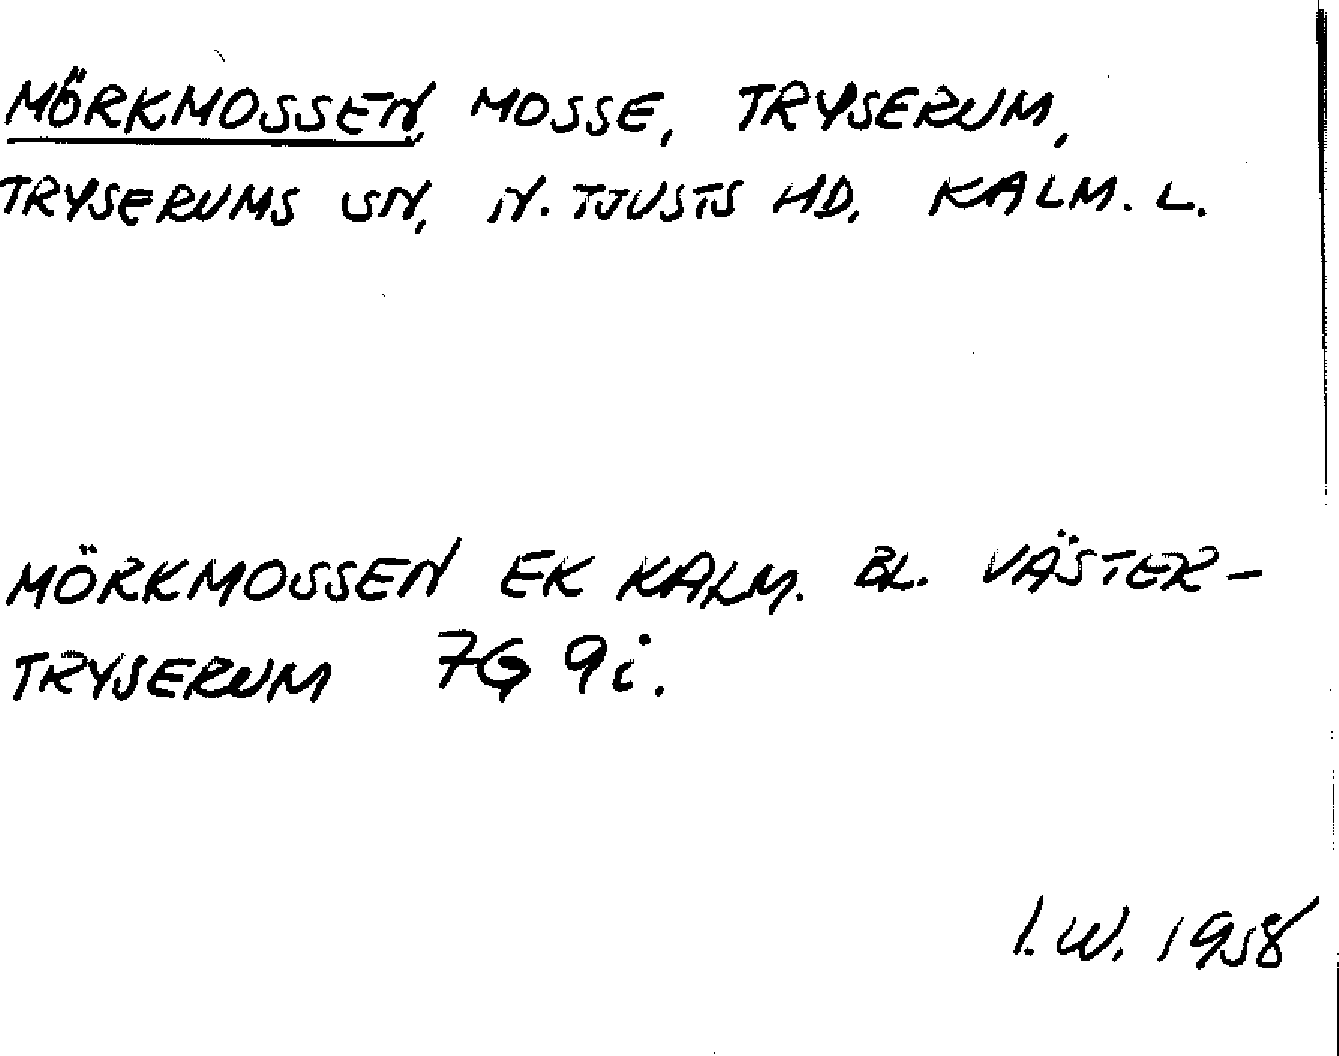 MÖRKMOSSEN, MOSSE, TRYSERUM,
TRYSERUMS SN, N. TJUSTS HD, KALM. L.
MÖRKMOSSEN EK KALM. BL. VÄSTER-
TRYSERUM 7G 9i.
I.W. 1958